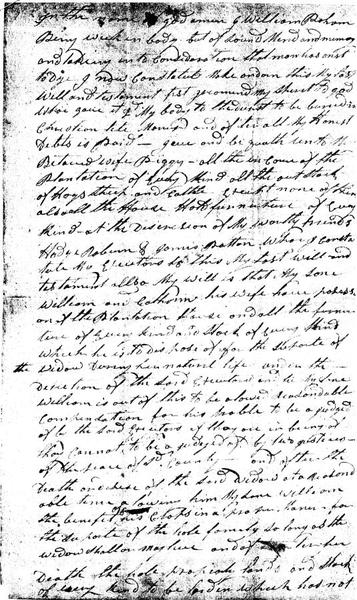 In the name of god amen I William Boham
Being week in body but of sound Mind and memory
and taking into Consideration that man has once
to Dye I now Constitute make and ordain this My last
Will and testament first recomend My spirit to god
who gave it & My body to the dust to be buried in
Christian like Manner and after all My Honest
Debts is Paid I gave and bequeath unto the
Beloved wife Peggy all the income of the
Plantation of Every Kind all the out stock
of Hogs Sheep and Cattle Except none of them
also all the House Hold furniture of Every
Kind at the Discresion of My worthy friends
& James Bratton whom I consti
tute My Executors to this My Last Will and
testament allso My Will is that My Sone
William and his wife have posess
on of the Plantation House and all the furni
ture of Every Kind and Stock of Every Kind
which he is to dispose of for the suporte of
the widow During her natural life under the
Direction of the Said Executors and he My Sone
William is out of this to be alowed reasondable
Compensation for his troble to be a judged
of by the said Executors if they are in being or
they Cannot to be a judged of by two justices
of the peace of Sd County and after the
Death or decese of the Said Widow at a reasond
able time alowing him My Sone William
the benefit of his Crops in a proper maner for
the suporte of the hole famely so long as the
widow shall or may live and after her
Death the hole propiate land and Stock
of every Kind to be Sold in which has not